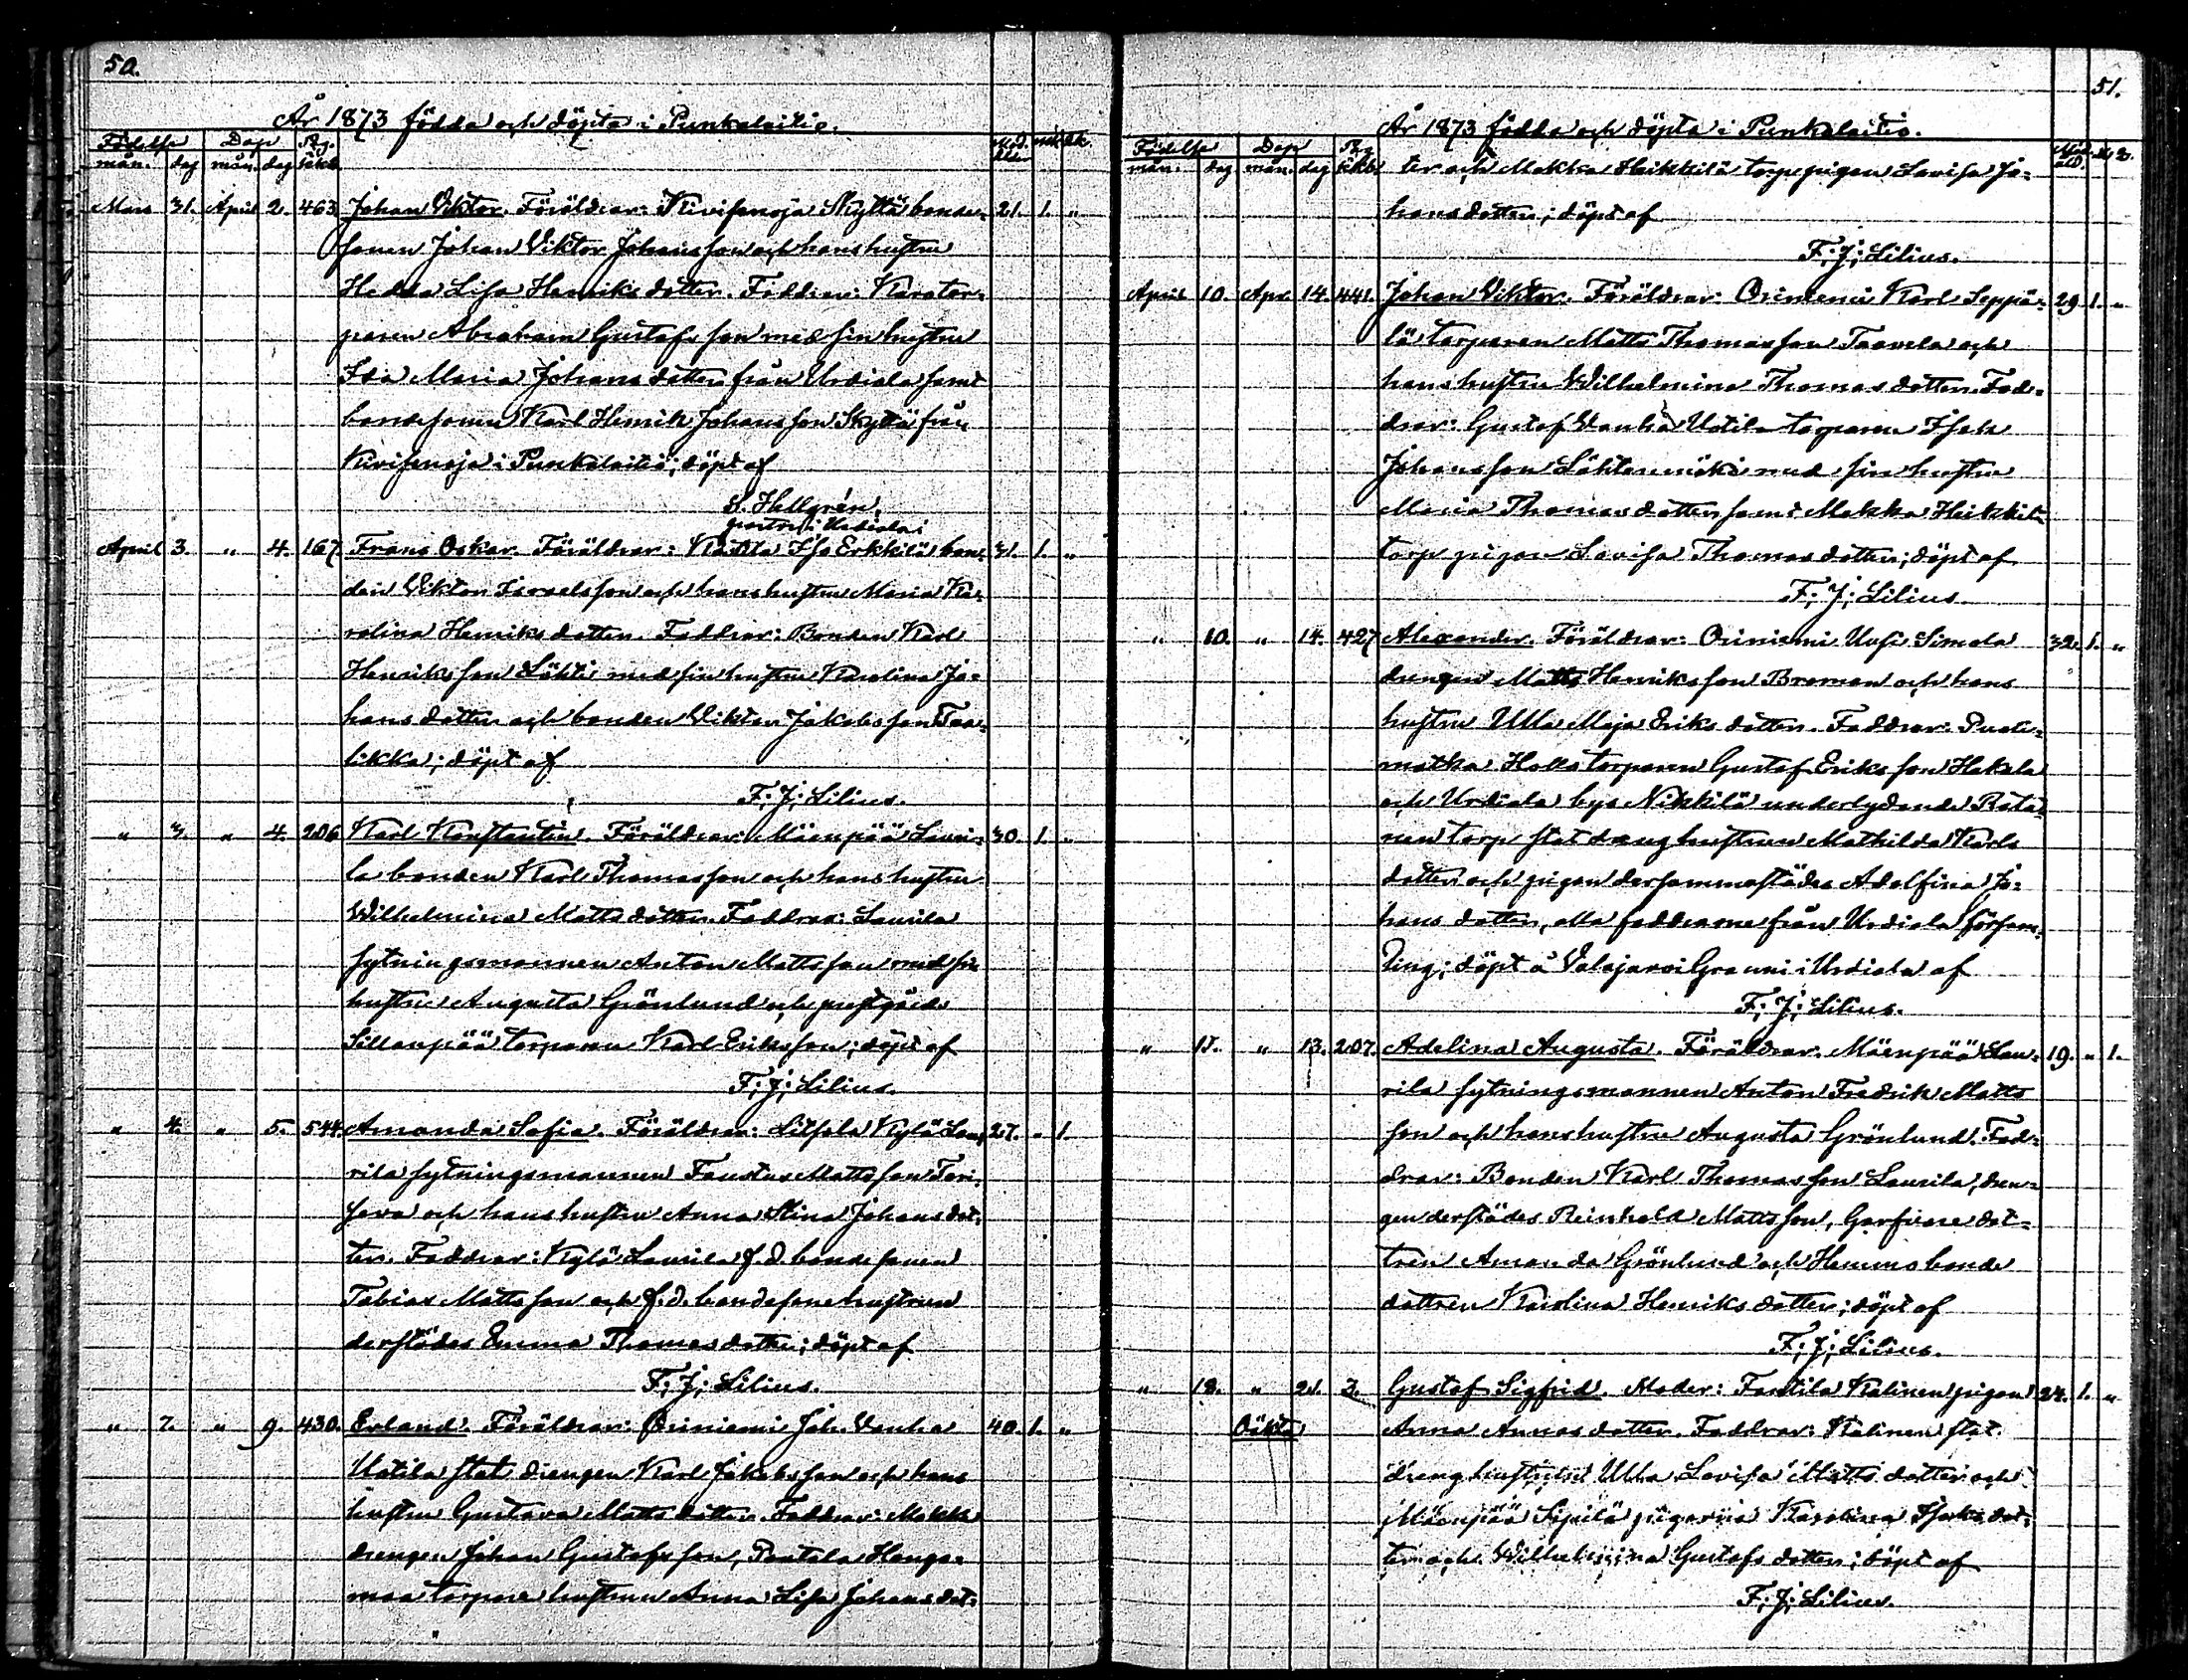 50.
År 1873 födda och döpta i Punkalaitio.
Födelse Dop Pag. Mod. mk. qk.
mån. dag mån. dag i kb. ålder
Mars 31. April 2. 463 Johan Viktor. Föräldrar: Kivisenoja Skyttä bonde- 21. 1. "
sonen Johan Viktor Johansson och hans hustru
Hedda Lisa Henriksdotter. Faddrar: Torp-
paren Abraham Gustafsson med sin hustru
Ida Maria Johansdotter från Urdiala samt
bondesonen Karl Henrik Johansson Skyttä från
Kivisenoja i Punkalaitio; döpt af
S. Hellgrén,
pastor i Urdiala;
April 3. " 4. 167 Frans Oskar. Föräldrar: Iso Erkkilä bon- 31. 1. "
den Viktor Israelsson och hans hustru Maria Ka-
rolina Henriksdotter. Faddrar: Bonden Karl
Henriksson Lähti med sin hustru Karolina Jo-
hansdotter och bonden Viktor Jakobsson Taa-
likka; döpt af
F; J; Lilius.
" 3. " 4. 206 Karl Konstantin. Föräldrar: Mäenpää Lauri- 30. 1. "
la bonden Karl Thomasson och hans hustru
Wilhelmina Mattsdotter. Faddrar: Laurila
sytningsmannen Anton Mattsson med sin
hustru Augusta Grönlund och prestgårds
Sillanpää torparen Karl Eriksson; döpt af
F; J; Lilius.
" 4. " 5. 544. Amanda Sofia. Föräldrar: Liitsola Kylä Lau- 27. " 1.
rila sytningsmannen Faustus Mattsson Tori-
seva och hans hustru Anna Stina Johansdot-
ter. Faddrar: Kylä Laurila f.d. bondesonen
Tobias Mattsson och f.d. bondesonehustrun
derstädes Emma Thomasdotter; döpt af
F; J; Lilius.
" 7. " 9. 430. Erland. Föräldrar: Oriniemi Joh. Vanha 40. 1. "
Uotila statdrengen Karl Jakobsson och hans
hustru Gustava Mattsdotter. Faddrar:
drengen Johan Gustafsson, Pentala
maa torparehustrun Anna Lisa Johansdot-
51.
År 1873 födda och döpta i Punkalaitio.
Födelse Dop Pag. Mod.
mån. dag mån. dag i kb. åld.
ter och Makka Heikkilä torpspigan Lovisa Jo-
hansdotter; döpt af
F; J; Lilius.
April 10. Apr. 14. 441. Johan Viktor. Föräldrar: Oriniemi Karl Seppä- 29 1. "
lä torparen Matts Thomasson Taavela och
hans hustru Wilhelmina Thomasdotter. Fad-
drar: Gustaf Vanha Uotila torparen Isak
Johansson Lähteenmäki med sin hustru
Maria Thomasdotter samt Makka Heikkilä
torpspigan Lovisa Thomasdotter; döpt af
F; J; Lilius.
" 10. " 14. 427 Alexander. Föräldrar: Oriniemi Uusi Simola 32. 1. "
drengen Matts Henriksson Broman och hans
hustru Ulla Maja Eriksdotter. Faddrar: Puoli-
matka Holla torparen Gustaf Eriksson Hakala
och Urdiala bys Nikkilä underlydande Rata-
nen torp statdrenghustrun Mathilda Karls
dotter och pigan dersammastädes Adolfina Jo-
hansdotter, alla faddrarne från Urdiala försam-
ling; döpt å Valajärvi Granni i Urdiala af
F; J; Lilius.
" 11. " 13. 207. Adelina Augusta. Föräldrar: Mäenpää Lau- 19. " 1.
rila sytningsmannen Anton Fredrik Matts
son och hans hustru Augusta Grönlund. Fad-
drar: Bonden Karl Thomasson Laurila, dren-
gen derstädes Reinhold Mattsson, Garfvare dot-
tren Amanda Grönlund och Hemmo bonde
dottren Karolina Henriksdotter; döpt af
F; J; Lilius.
" 18. " 21. 3. Gustaf Sigfrid. Moder: Talinen pigan 24. 1. "
Oäkta Anna Annasdotter. Faddrar: Talinen stat-
drenghustrun Ulla Lovisa Mattsdotter och
Mäenpää Sipilä pigorna Karolina Isaksdot-
ter och Wilhelmina Gustafsdotter; döpt af
F; J; Lilius.